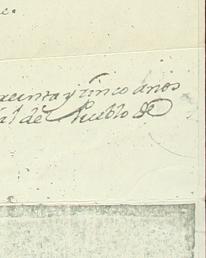 e.
reinta y cinco años
al de Pueblo de